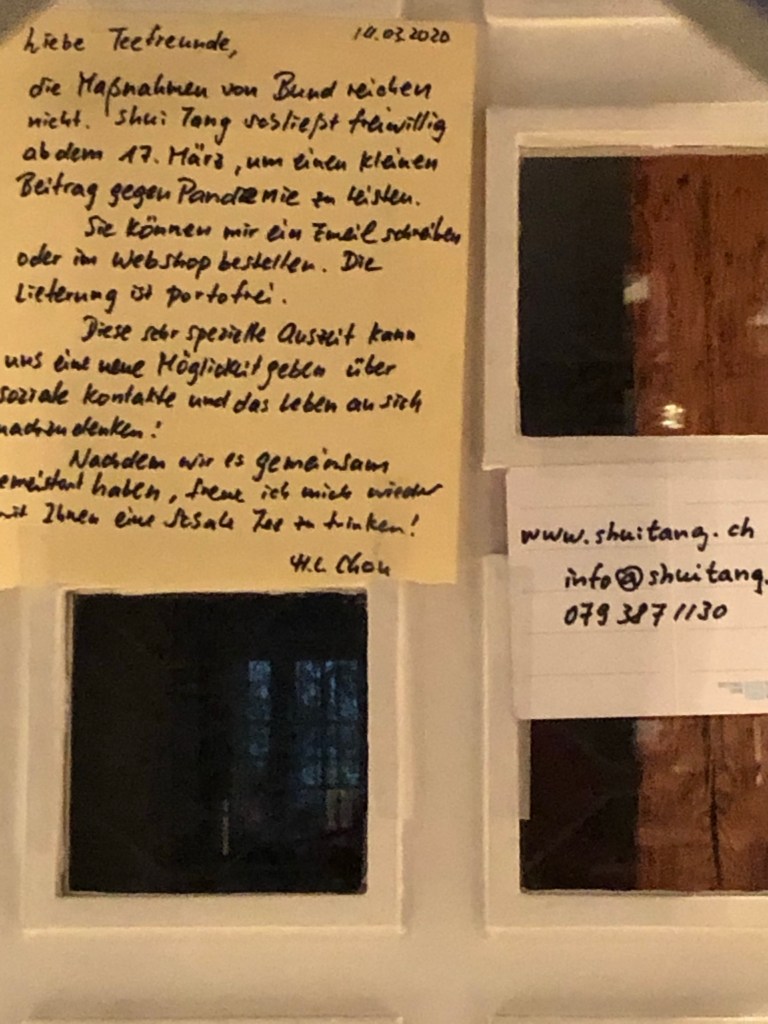 Liebe Teefreunde,
14.03.2020
die Maßnahmen von Bund reichen
nicht. Shui Tang schließt freiwillig
ab dem 17. März, um einen kleinen
Beitrag gegen Pandemie zu leisten.
Sie können mir ein Email schreiben
oder im Webshop bestellen. Die
Lieferung ist portofrei.
Diese sehr spezielle Auszeit kann
uns eine neue Möglichkeit geben über
soziale Kontakte und das Leben an sich
nachzudenken!
Nachdem wir es gemeinsam
gemeistert haben, freue ich mich wieder
mit Ihnen eine Schale Tee zu trinken!
www.shuitang.ch
info@shuitang.
079 387 1130